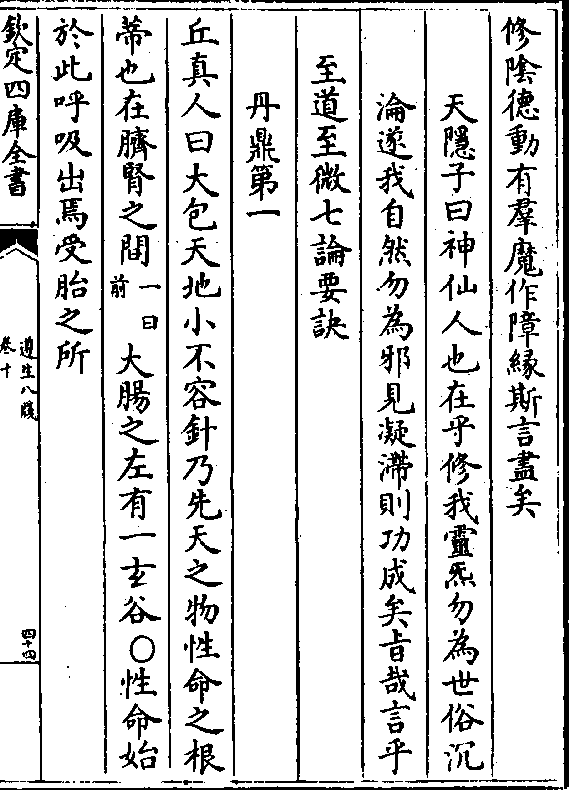 修陰德動有羣魔作障緣斯言盡矣
天隱子曰神仙人也在乎修我靈炁勿為世俗沉
淪遂我自然勿為邪見凝滯則功成矣旨哉言乎
至道至微七論要訣
丹鼎第一
丘真人曰大包天地小不容針乃先天之物性命之根
蒂也在臍腎之間一曰前大腸之左有一玄谷〇性命始
於此呼吸出焉受胎之所
欽定四庫全書
遵生八牋
卷十
四十四